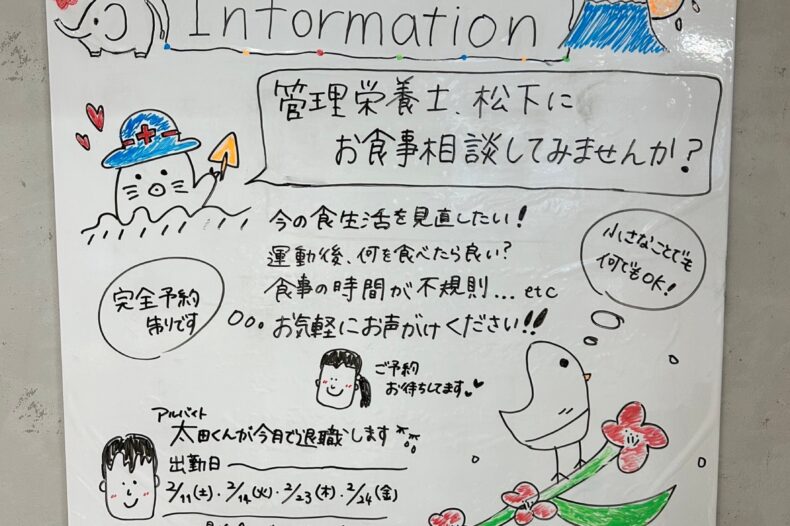 Information
管理栄養士、松下に
お食事相談してみませんか?
今の食生活を見直したい!
運動後、何を食べたら良い?
食事の時間が不規則... etc
お気軽にお声がけください!!
小さなことでも
何でもOK!
完全予約
制です
ご予約
お待ちしてます
アルバイト
太田くんが今月で退職します
出勤日
2/11(土)・2/14(火)・2/23(木)・2/24(金)